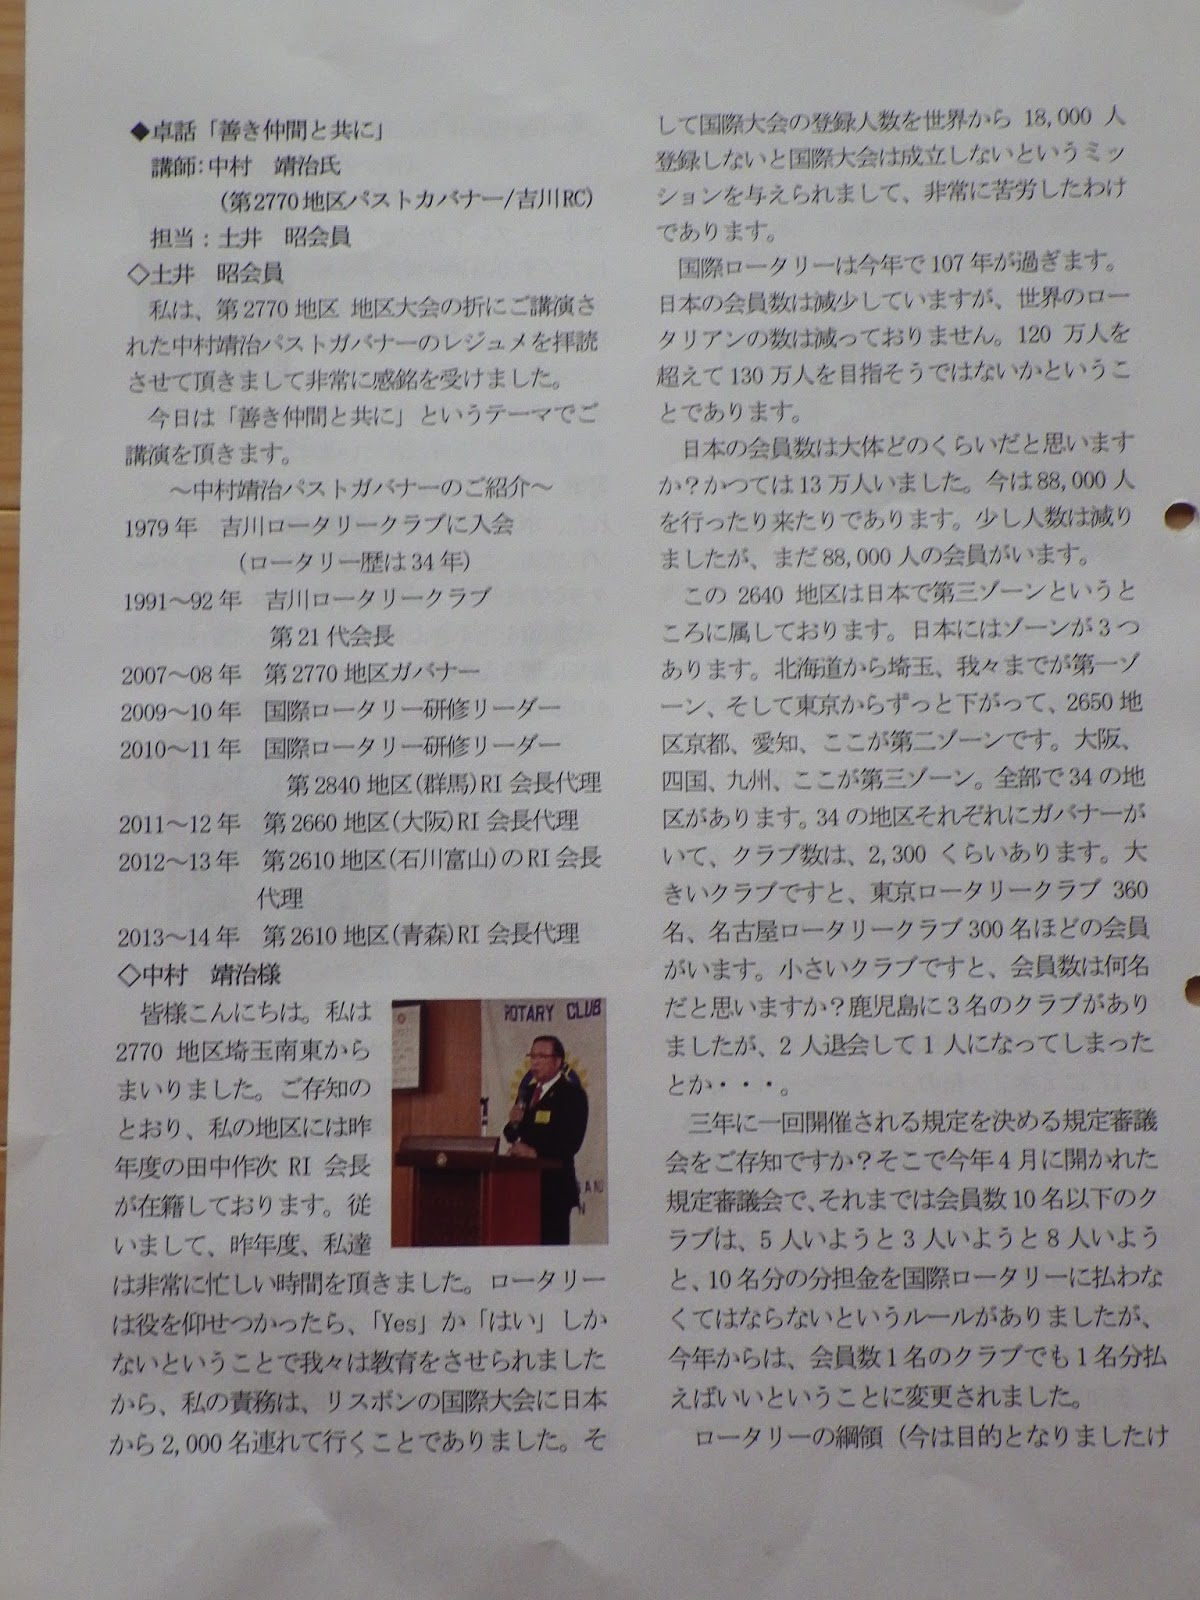 ◆卓話「善き仲間と共に」
講師:中村　靖治氏
(第2770地区パストカバナー/吉川RC)
担当：土井　昭会員
◇土井　昭会員
私は、第2770地区 地区大会の折にご講演さ
れた中村靖治パストガバナーのレジュメを拝読
させて頂きまして非常に感銘を受けました。
今日は「善き仲間と共に」というテーマでご
講演を頂きます。
～中村靖治パストガバナーのご紹介～
1979年　吉川ロータリークラブに入会
(ロータリー歴は34年)
1991～92年　吉川ロータリークラブ
第21代会長
2007～08年　第2770地区ガバナー
2009～10年　国際ロータリー研修リーダー
2010～11年　国際ロータリー研修リーダー
第2840地区(群馬)RI会長代理
2011～12年　第2660地区(大阪)RI会長代理
2012～13年　第2610地区(石川富山)のRI会長
代理
2013～14年　第2610地区(青森)RI会長代理
◇中村　靖治様
皆様こんにちは。私は
2770 地区埼玉南東から
まいりました。ご存知の
とおり、私の地区には昨
年度の田中作次 RI 会長
が在籍しております。従
いまして、昨年度、私達
は非常に忙しい時間を頂きました。ロータリー
は役を仰せつかったら、「Yes」か「はい」しか
ないということで我々は教育をさせられました
から、私の責務は、リスボンの国際大会に日本
から2,000名連れて行くことでありました。そ
ROTARY CLUB
して国際大会の登録人数を世界から 18,000 人
登録しないと国際大会は成立しないというミッ
ションを与えられまして、非常に苦労したわけ
であります。
国際ロータリーは今年で107年が過ぎます。
日本の会員数は減少していますが、世界のロー
タリアンの数は減っておりません。120 万人を
超えて130万人を目指そうではないかというこ
とであります。
日本の会員数は大体どのくらいだと思います
か？かつては13万人いました。今は88,000人
を行ったり来たりであります。少し人数は減り
ましたが、まだ88,000人の会員がいます。
この 2640 地区は日本で第三ゾーンというと
ころに属しております。日本にはゾーンが3つ
あります。北海道から埼玉、我々までが第一ゾ
ーン、そして東京からずっと下がって、2650地
区京都、愛知、ここが第二ゾーンです。大阪、
四国、九州、ここが第三ゾーン。全部で34の地
区があります。34の地区それぞれにガバナーが
いて、クラブ数は、2,300 くらいあります。大
きいクラブですと、東京ロータリークラブ 360
名、名古屋ロータリークラブ300名ほどの会員
がいます。小さいクラブですと、会員数は何名
だと思いますか？鹿児島に3名のクラブがあり
ましたが、2人退会して1人になってしまった
とか・・・。
三年に一回開催される規定を決める規定審議
会をご存知ですか？そこで今年4月に開かれた
規定審議会で、それまでは会員数10名以下のク
ラブは、5人いようと3人いようと8人いよう
と、10名分の分担金を国際ロータリーに払わな
くてはならないというルールがありましたが、
今年からは、会員数1名のクラブでも1名分払
えばいいということに変更されました。
ロータリーの綱領（今は目的となりましたけ